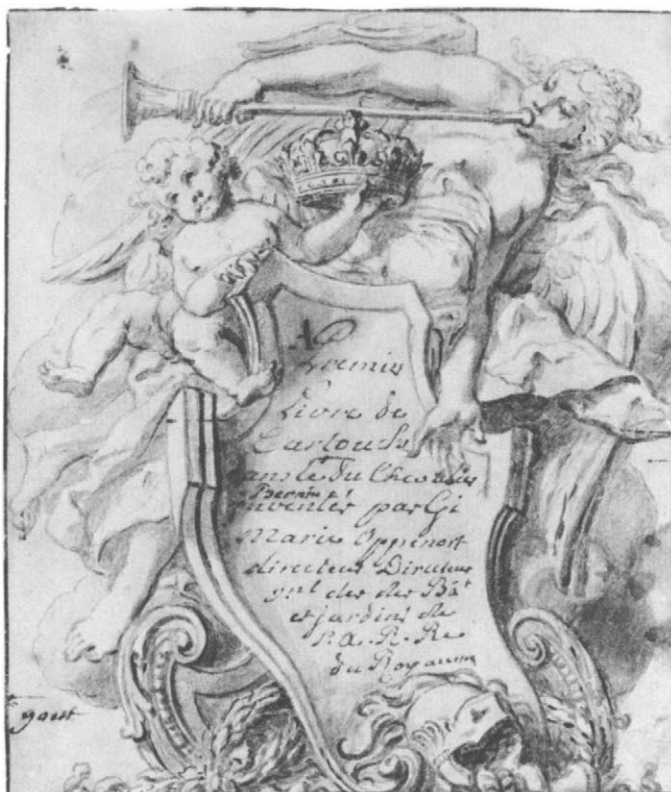 A
Premie
Livre de
Cartouche
Chevalier
Bernin
inventés par Gi
Marie Oppenort
directeur Directeur
gnl des des Bât
et jardins de
S. A. R. Re
du Royaume
gout